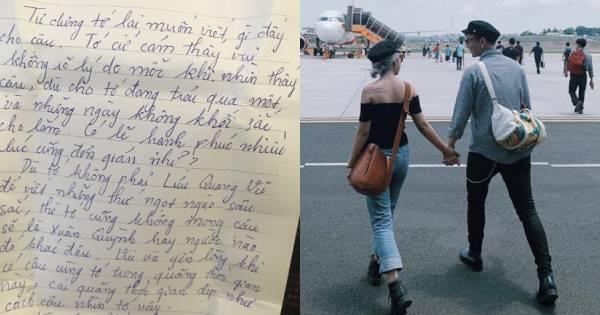 Tự dưng tớ lại muốn viết gì đấy
cho cậu. Tớ cứ cảm thấy vui
không rõ lý do mỗi khi nhìn thấy
cậu, dù cho tớ đang trải qua một
và những ngày không khởi sắc
cho lắm. Có lẽ hạnh phúc nhiều
lúc cũng đơn giản nhỉ?
Dù tớ không phải Lưu Quang Vũ
để viết những thư ngọt ngào sâu
sắc, thì tớ cũng không mong cậu
sẽ là Xuân Quỳnh hay người nào
đó khác đâu. Vui và yên lòng khi
có cậu cùng tớ trong quãng thời gian
này, cái quãng thời gian đẹp như
cách cậu nhìn tớ vậy.